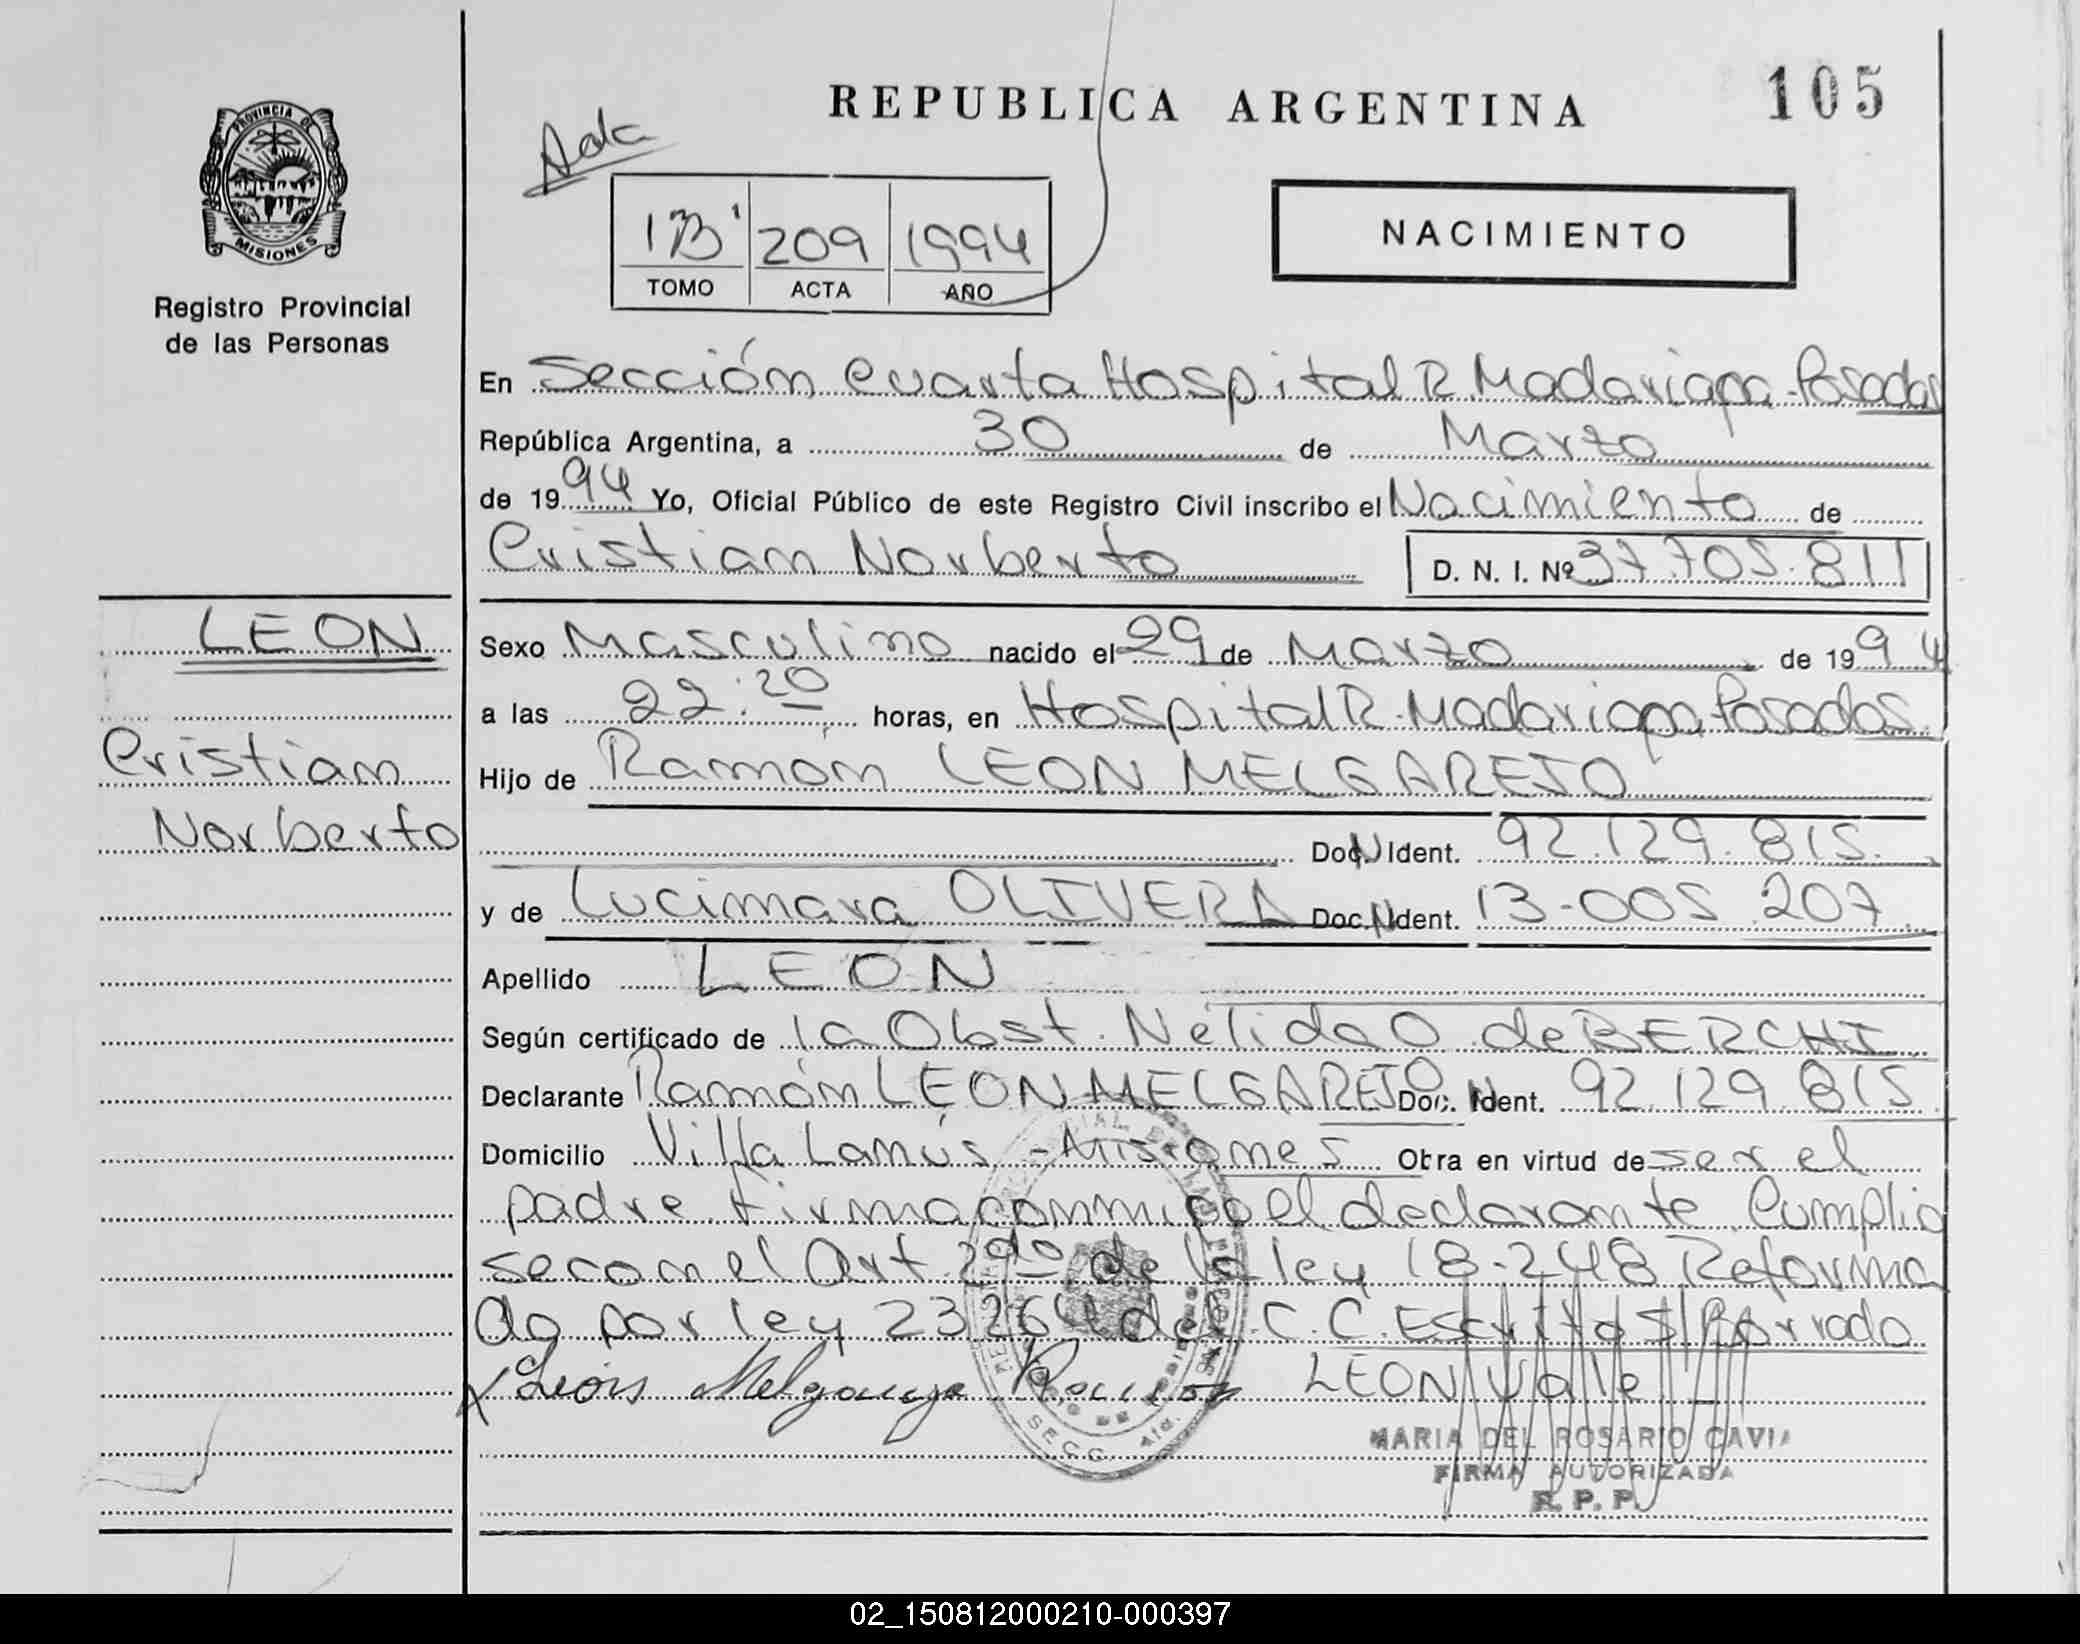 REPUBLICA ARGENTINA
105
PROVINCIA DE
MISIONES
Registro Provincial
de las Personas
1B' 209 1994
TOMO ACTA AÑO
NACIMIENTO
En Sección Cuarta Hospital R. Madariaga - Posadas
República Argentina, a 30 de Marzo
de 1994 Yo, Oficial Público de este Registro Civil inscribo el Nacimiento de
Cristian Norberto D. N. I. Nº 37.705.811
LEON
Cristian
Norberto
Sexo Masculino nacido el 29 de Marzo de 1994
a las 22:20 horas, en Hospital R. Madariaga Posadas
Hijo de Ramón LEON MELGAREJO
Doc. N Ident. 92.129.815.
y de Lucimara OLIVERA Doc. N Ident. 13-005.207
Apellido LEON
Según certificado de la Obst. Nelida O. de BERCHI
Declarante Ramón LEON MELGAREJO Doc. N Ident. 92.129.815
Domicilio Villa Lanús - Misiones Obra en virtud de ser el
padre. Firma conmigo el declarante. Cumplio
se con el Art. 2do de la ley 18-248 Reforma
da por ley 23264 del C.C. Escrito S/ Borrado
León Melgarejo Ramon LEON Vale
MARIA DEL ROSARIO CAVIA
FIRMA AUTORIZADA
R. P. P.
SECC. 4ta.
02_150812000210-000397